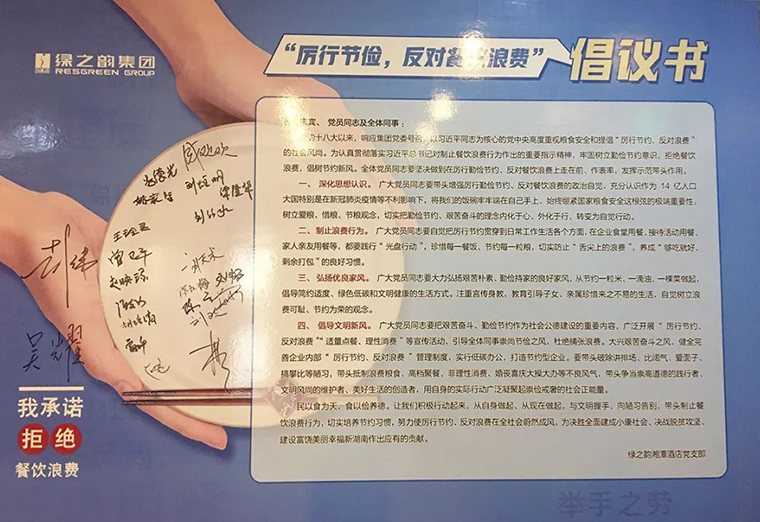 绿之韵集团
RESGREEN GROUP
“厉行节俭，反对餐饮浪费”
倡议书
党员同志及全体同事：
十八大以来，响应集团党委号召，以习近平同志为核心的党中央高度重视粮食安全和提倡“厉行节约、反对浪费”
的社会风尚。为认真贯彻落实习近平总书记对制止餐饮浪费行为作出的重要指示精神，牢固树立勤俭节约意识，拒绝餐饮
浪费，倡树节约新风。全体党员同志要坚决做到在厉行勤俭节约、反对餐饮浪费上走在前、作表率，发挥示范带头作用。
一、 深化思想认识。 广大党员同志要带头增强厉行勤俭节约、反对餐饮浪费的政治自觉，充分认识作为 14 亿人口
大国特别是在新冠肺炎疫情等不利影响下，将我们的饭碗牢牢端在自己手上、始终绷紧国家粮食安全这根弦的极端重要性，
树立爱粮、惜粮、节粮观念，切实把勤俭节约、艰苦奋斗的理念内化于心、外化于行，转变为自觉行动。
二、制止浪费行为。 广大党员同志要自觉把厉行节约贯穿到日常工作生活各个方面，在企业食堂用餐、接待活动用餐、
家人亲友用餐等，都要践行“光盘行动”，珍惜每一餐饭、节约每一粒粮，切实防止“舌尖上的浪费”，养成“够吃就好，
剩余打包”的良好习惯。
三、弘扬优良家风。 广大党员同志要大力弘扬艰苦朴素、勤俭持家的良好家风，从节约一粒米、一滴油、一棵菜做起，
倡导简约适度、绿色低碳和文明健康的生活方式。注重言传身教，教育引导子女、亲属珍惜来之不易的生活，自觉树立浪
费可耻、节约为荣的观念。
四、 倡导文明新风。 广大党员同志要把艰苦奋斗、勤俭节约作为社会公德建设的重要内容，广泛开展“厉行节约、
反对浪费”“适量点餐、理性消费”等宣传活动，引导全体同事崇尚节俭之风、杜绝铺张浪费。大兴艰苦奋斗之风，健全完
善企业内部“厉行节约、反对浪费”管理制度，实行低碳办公，打造节约型企业。要带头破除讲排场、比阔气、爱面子、
搞攀比等陋习，带头抵制浪费粮食、高档聚餐、非理性消费、婚丧喜庆大操大办等不良风气，带头争当崇高道德的践行者、
文明风尚的维护者、美好生活的创造者，用自身的实际行动广泛凝聚起崇俭戒奢的社会正能量。
民以食为天，食以俭养德，让我们积极行动起来，从自身做起、从现在做起，与文明握手、向陋习告别，带头制止餐
饮浪费行为，切实培养节约习惯，努力使厉行节约、反对浪费在全社会蔚然成风，为决胜全面建成小康社会、决战脱贫攻坚、
建设富饶美丽幸福新湖南作出应有的贡献。
绿之韵湘潭酒店党支部
吴耀
我承诺
拒绝
餐饮浪费
举手之劳